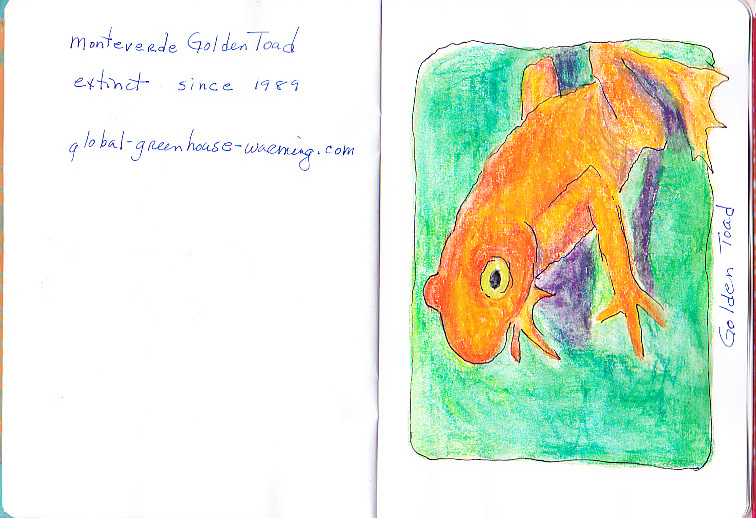 Monteverde Golden Toad
extinct since 1989
global-greenhouse-warming.com
Golden Toad